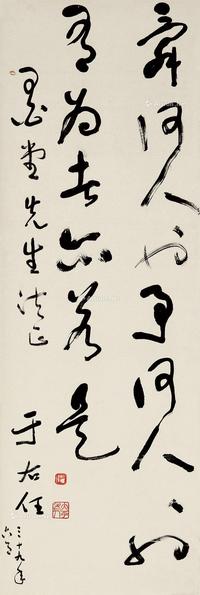 舜何人也予何人也
有為者亦若是
墨堂先生法正
于右任
三十九年
六月